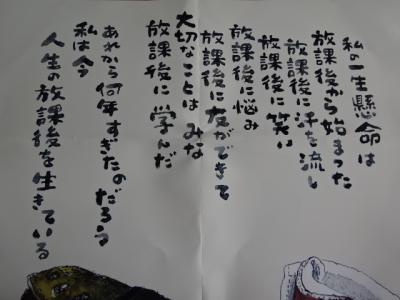 私の一生懸命は
放課後から始まった
放課後に汗を流し
放課後に笑い
放課後に悩み
放課後に友ができて
大切なことは みな
放課後に 学んだ
あれから何年すぎたのだろう
私は今
人生の放課後を生きている